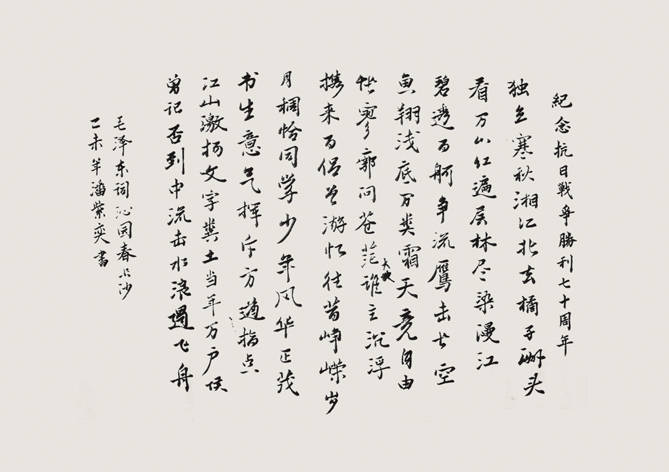 紀念抗日戰爭勝利七十周年
独立寒秋湘江北去橘子洲头
看万山红遍层林尽染漫江
碧透百舸争流鹰击长空
鱼翔浅底万类霜天竞自由
怅寥廓问苍茫大地谁主沉浮
携来百侣曾游忆往昔峥嵘岁
月稠恰同学少年风华正茂
书生意气挥斥方遒指点
江山激扬文字粪土当年万户侯
曾记否到中流击水浪遏飞舟
毛泽东词沁园春长沙
乙未年潘紫奕書